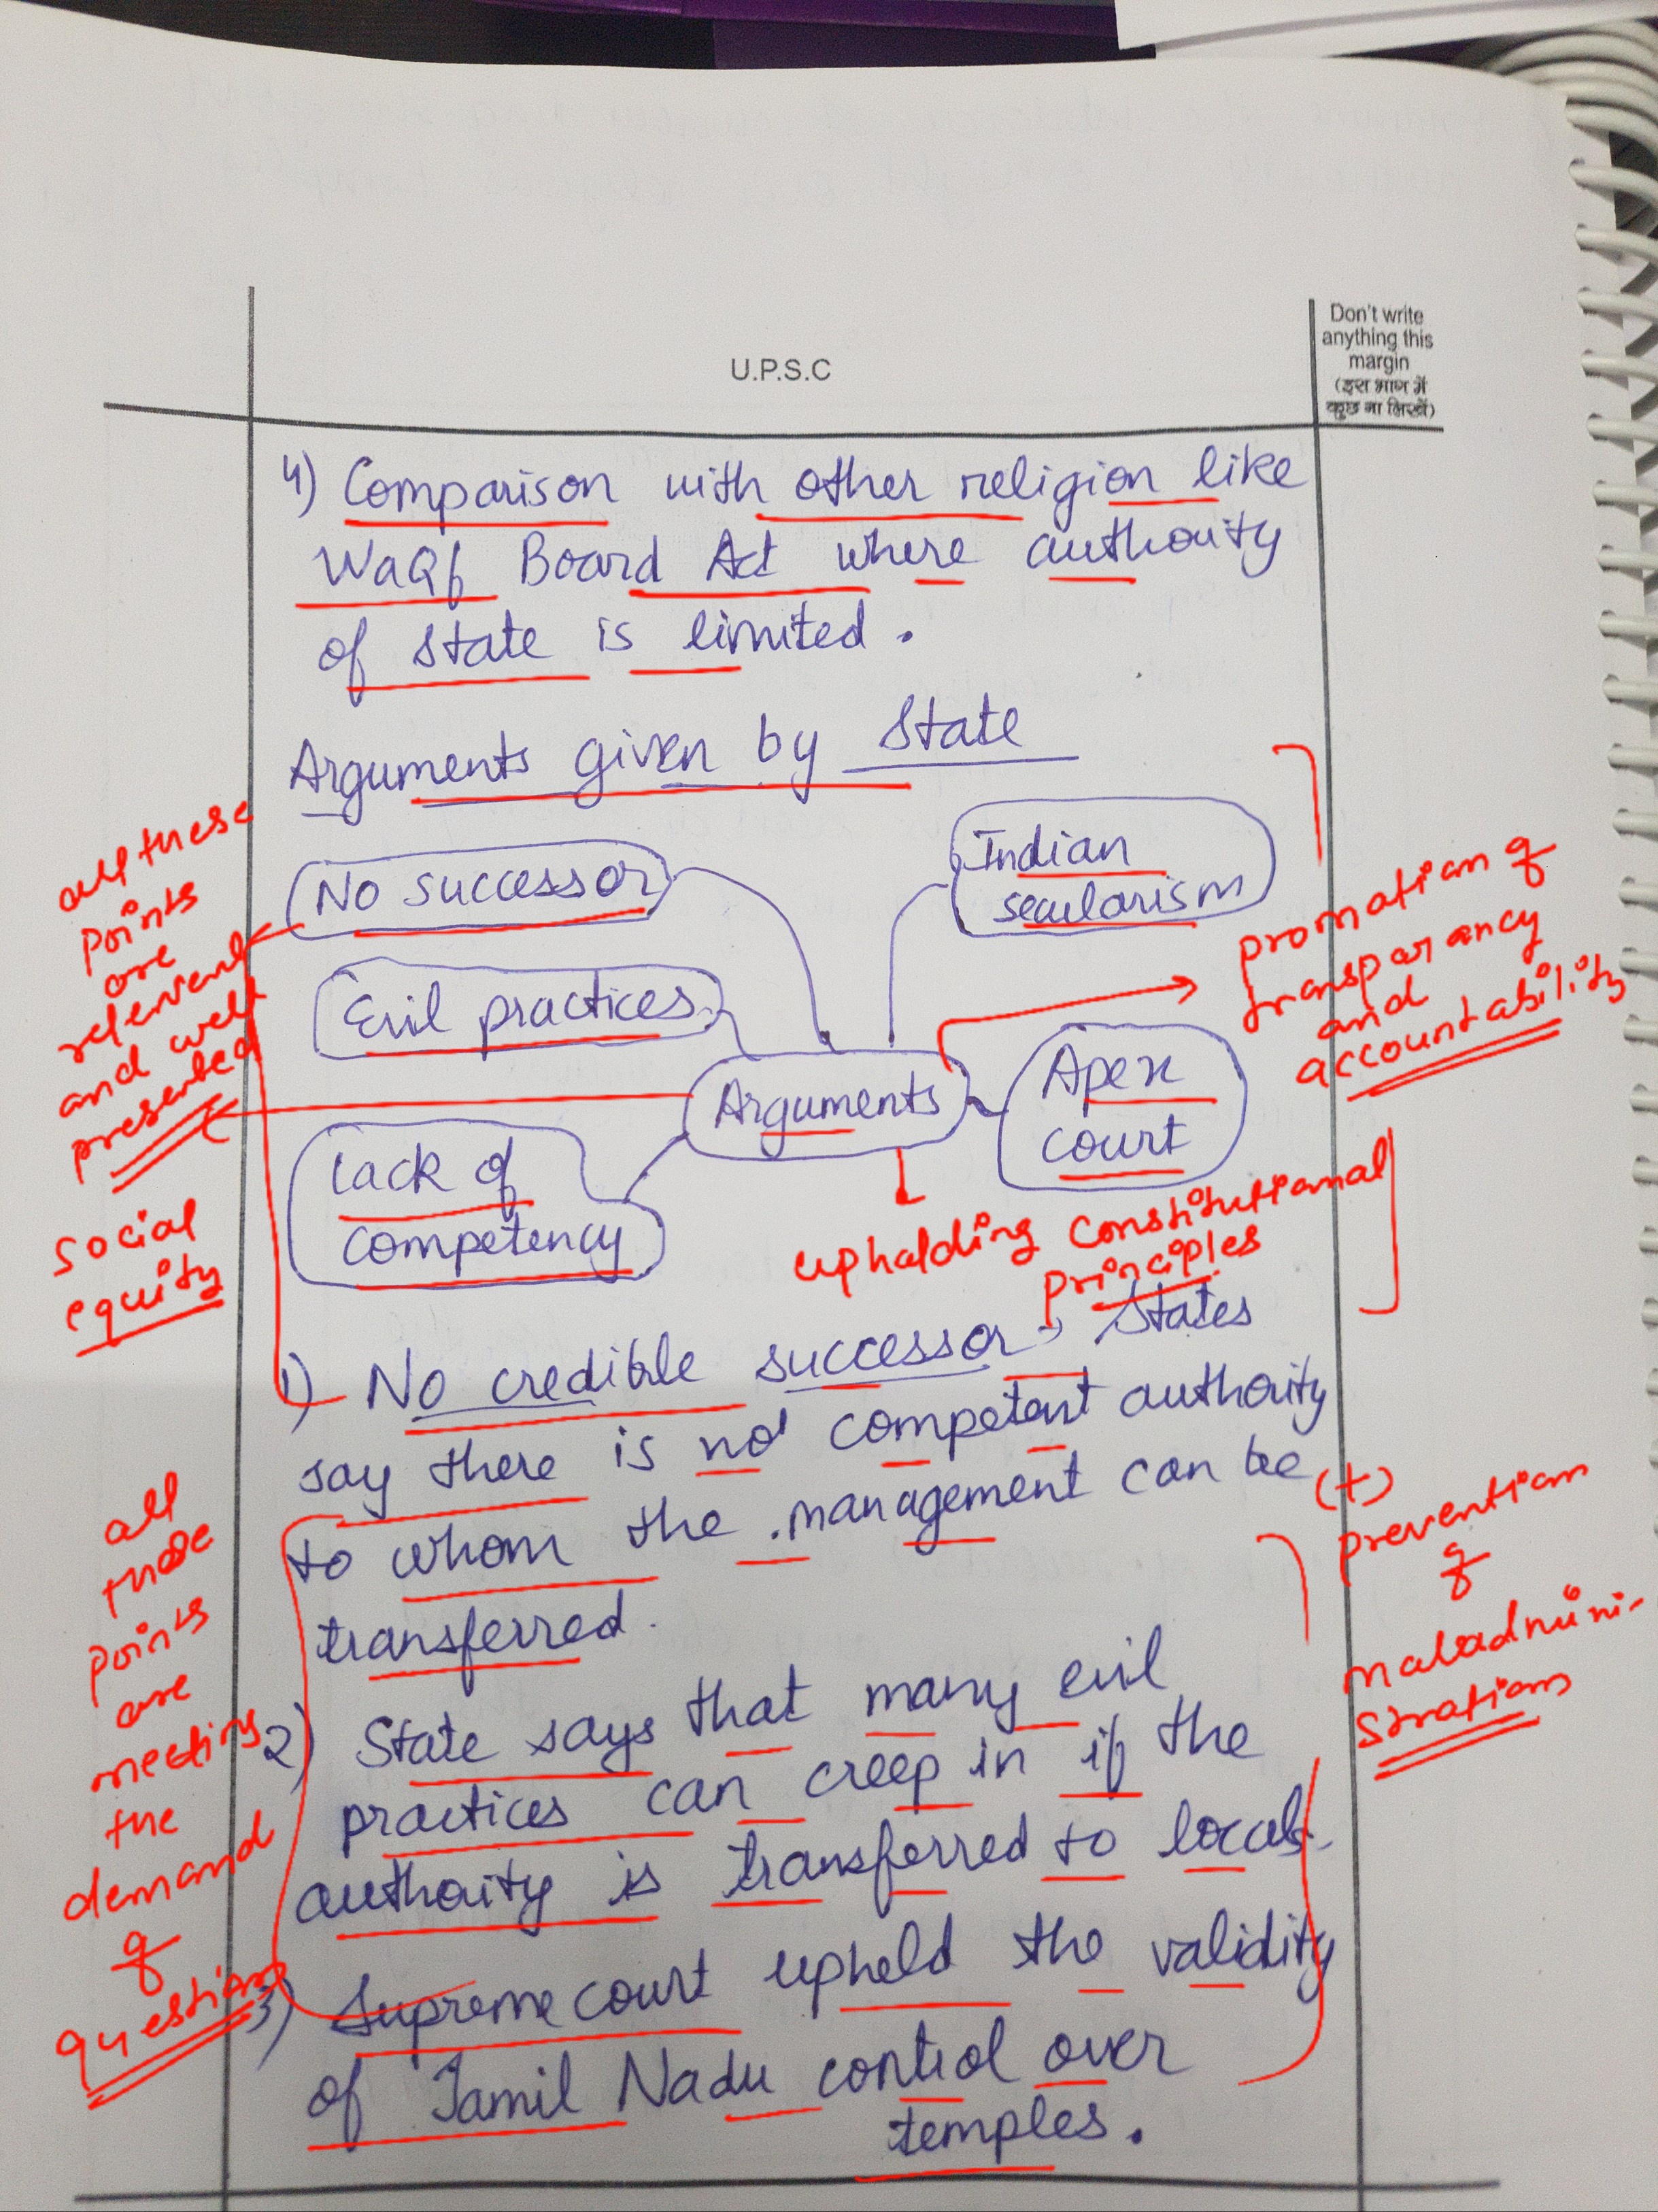 Don't write
anything this
margin
(इस भाग में
कुछ ना लिखें)
U.P.S.C
4) Comparison with other religion like
WaQf Board Act where authority
of state is limited.
Arguments given by State
No successor
Indian
secularism
Evil practices
Arguments
Apex
court
Lack of
competency
all these
points
are
relevant
and well
presented
social
equity
promotion of
transparancy
and
accountability
upholding constitutional
principles
1) No credible successor → States
say there is no competent authority
to whom the management can be
transferred.
2) State says that many evil
practices can creep in if the
authority is transferred to local.
3) Supreme court upheld the validity
of Tamil Nadu control over
temples.
all
these
points
are
meeting
the
demand
of
question
(+)
prevention
of
maladmini-
strations